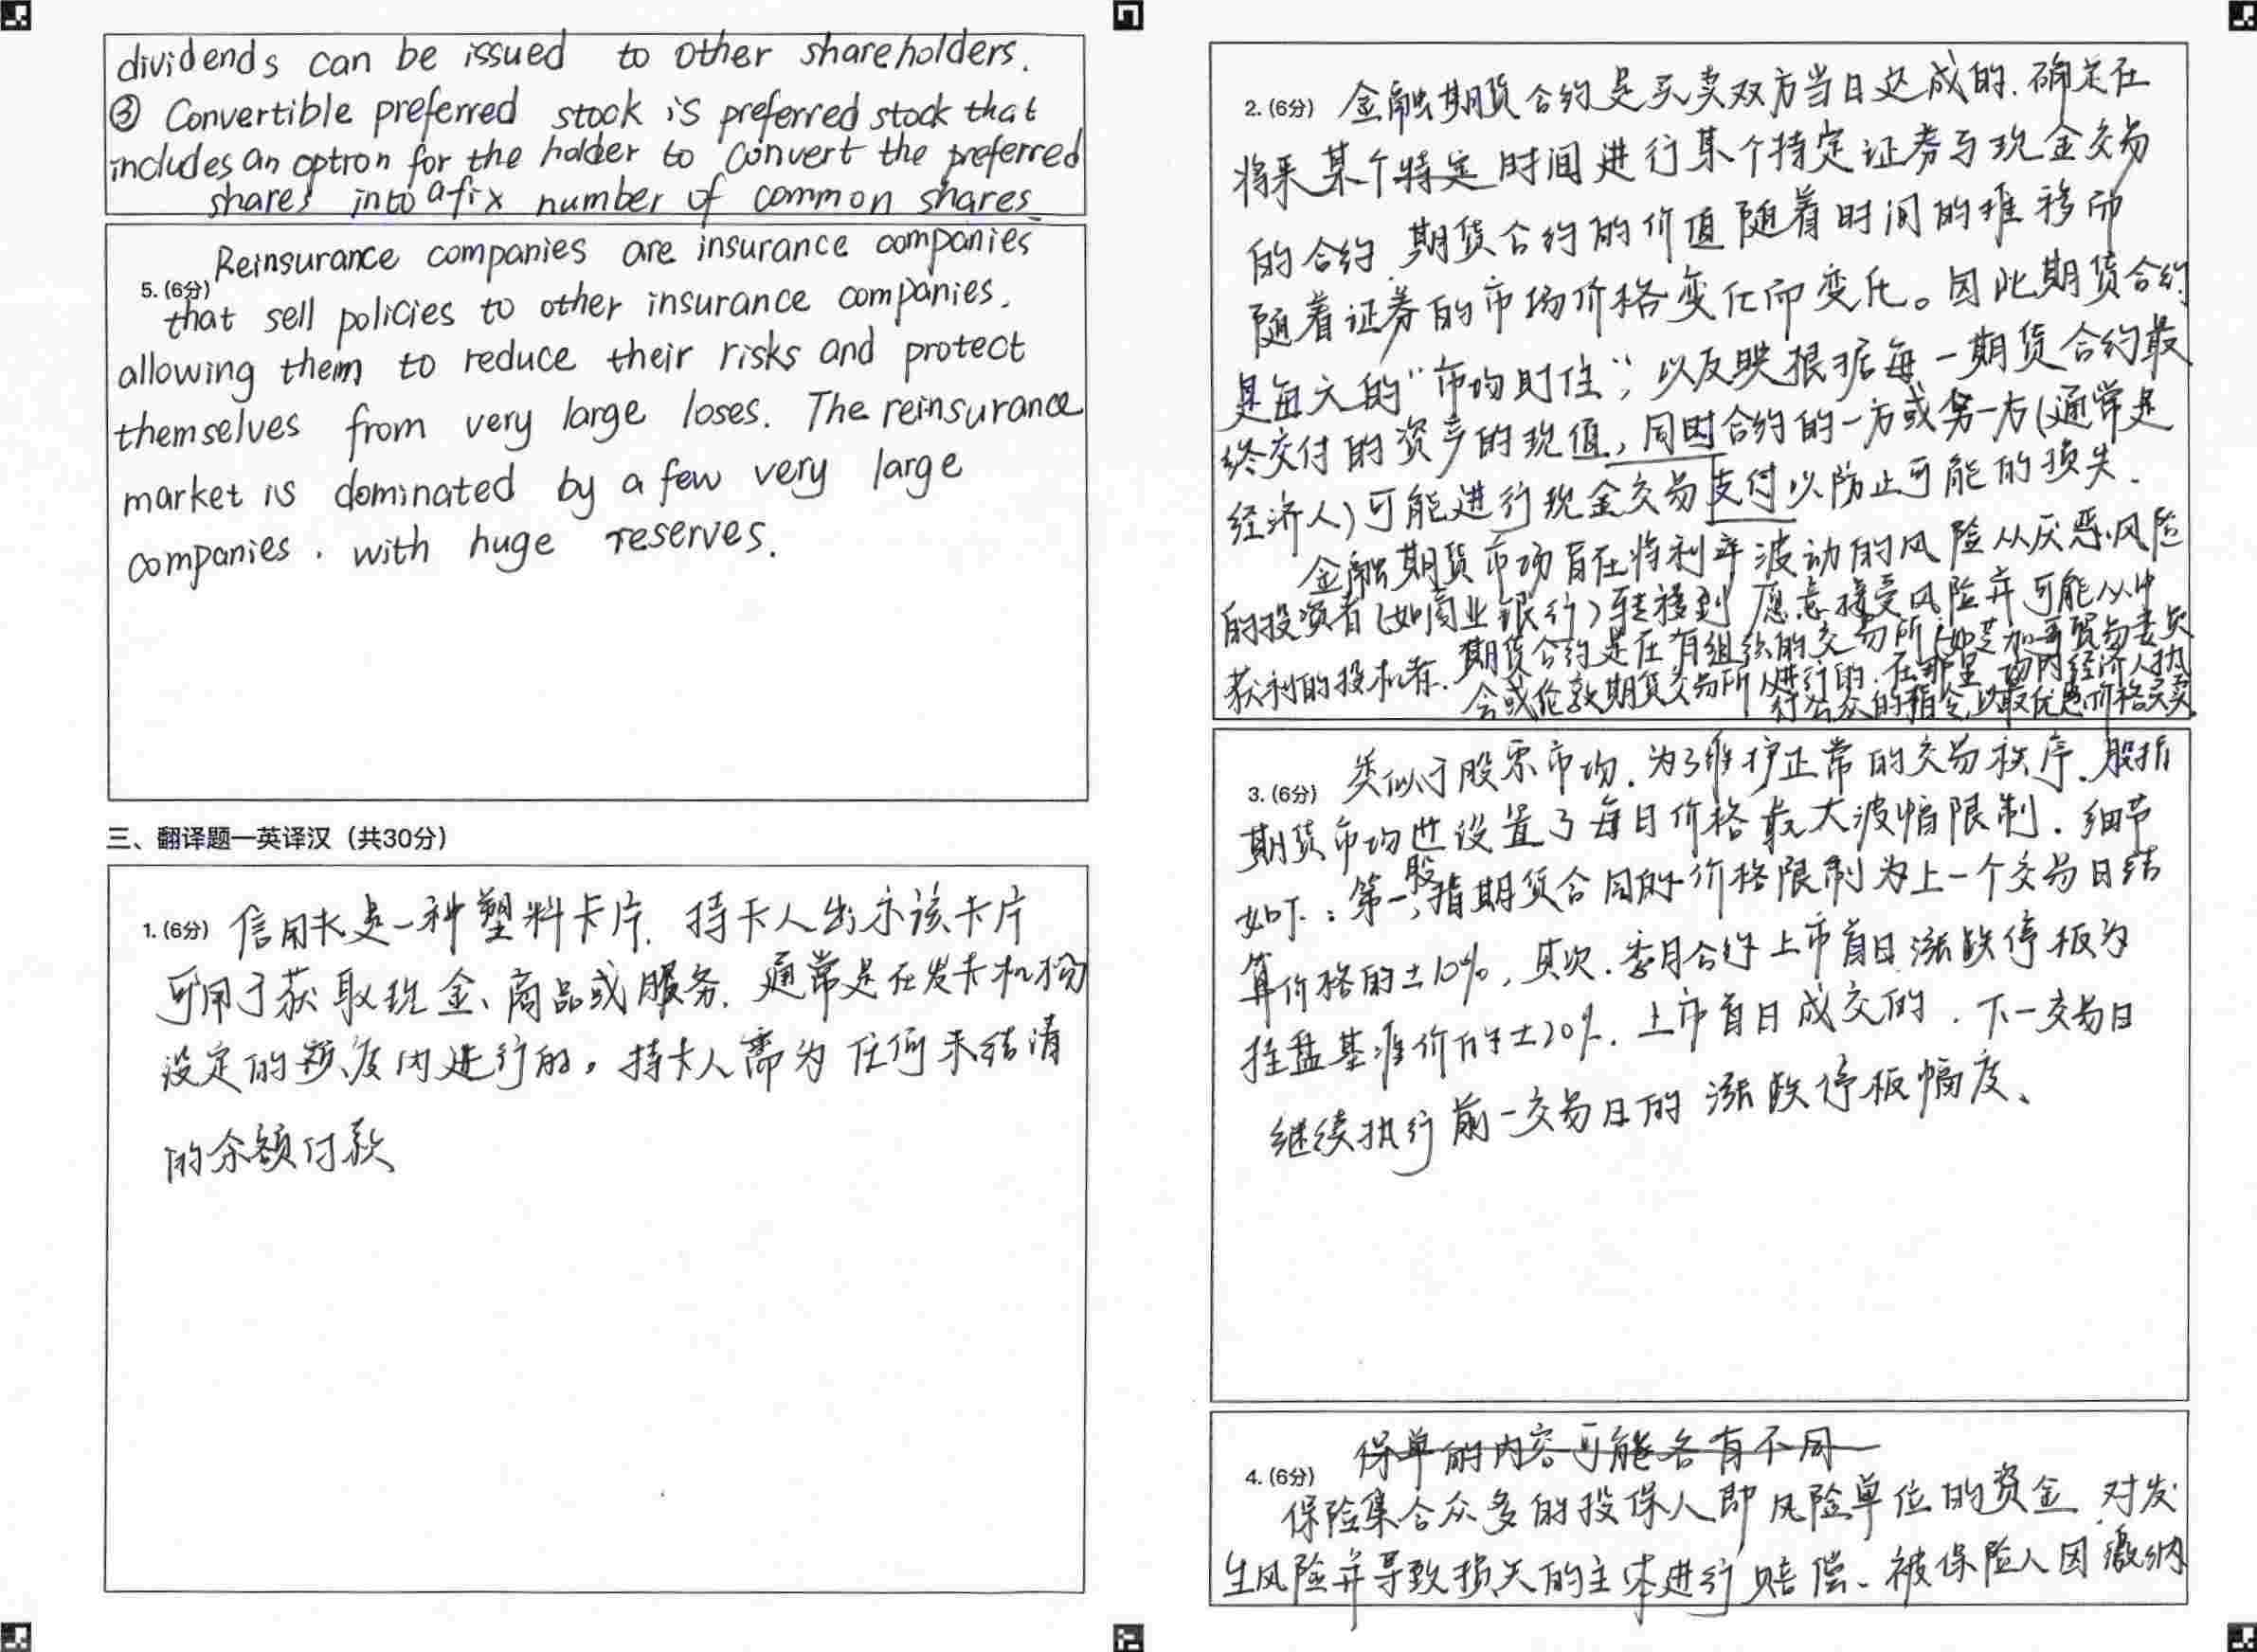 dividends can be issued to other shareholders.
③ Convertible preferred stock is preferred stock that
includes an option for the holder to convert the preferred
shares into a fix number of common shares.
Reinsurance companies are insurance companies
5. (6分)
that sell policies to other insurance companies,
allowing them to reduce their risks and protect
themselves from very large loses. The reinsurance
market is dominated by a few very large
companies, with huge reserves.
三、翻译题—英译汉（共30分）
1. (6分) 信用卡是一种塑料卡片，持卡人出示该卡片
可用于获取现金、商品或服务，通常是在发卡机构
设定的额度内进行的。持卡人需为任何未结清
的余额付款
2. (6分) 金融期货合约是买卖双方当日达成的，确定在
将来某个特定时间进行某个特定证券与现金交易
的合约，期货合约的价值随着时间的推移而
随着证券的市场价格变化而变化。因此期货合约
是每天的“市场时住”，以反映根据每一期货合约最
终交付的资产的现值，同时合约的一方或另一方（通常是
经济人）可能进行现金交易支付以防止可能的损失．
金融期货市场旨在将利率波动的风险从厌恶风险
的投资者（如商业银行）转移到愿意接受风险并可能从中
获利的投机者．期货合约是在有组织的交易所（如芝加哥贸易委员
会或伦敦期货交易所）进行的，在那里，场内经济人执
行公众的指令，以最优惠价格买卖．
3. (6分) 类似于股票市场，为了维护正常的交易秩序，股指
期货市场也设置了每日价格最大波幅限制．细节
如下：第一，股指期货合同的价格限制为上一个交易日结
算价格的±10%，其次，季月合约上市首日涨跌停板为
挂盘基准价的±20%．上市首日成交的，下一交易日
继续执行前一交易日的涨跌停板幅度、
保单的内容可能各有不同
4. (6分)
保险集合众多的投保人即风险单位的资金，对发
生风险并导致损失的主体进行赔偿、被保险人因缴纳